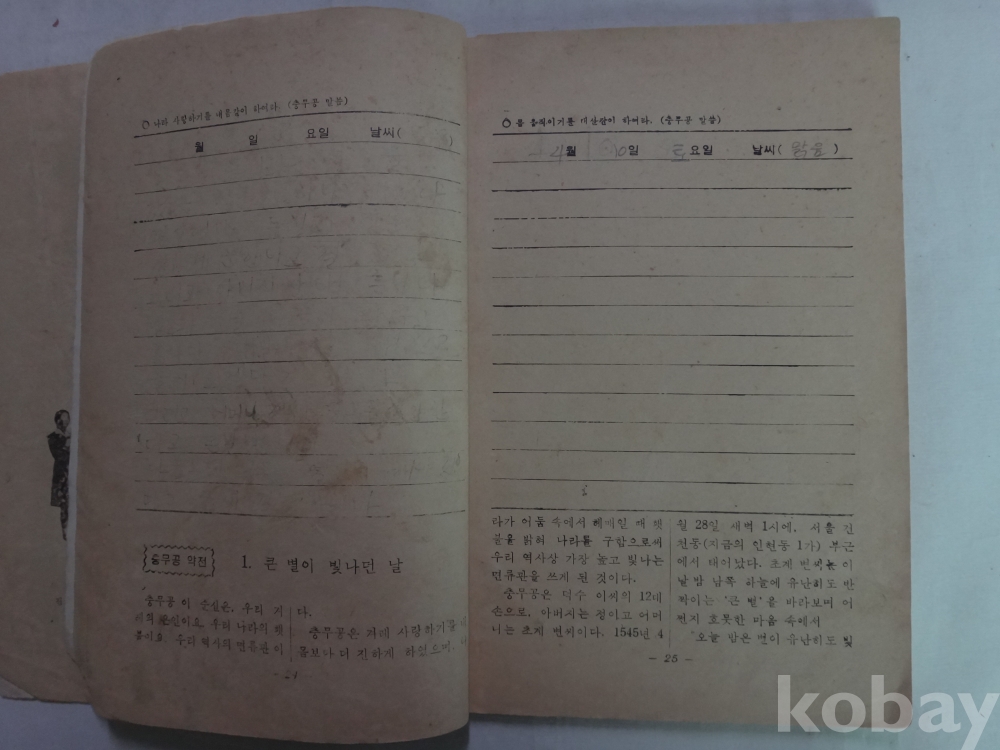 ○ 나라 사랑하기를 내몸같이 하여라. (충무공 말씀)
월 일 요일 날씨(
충무공 약전
1. 큰 별이 빛나던 날
충무공 이 순신은, 우리 겨
레의 은인이요 우리 나라의 햇
불이요. 우리 역사의 면류관이
다.
충무공은 겨레 사랑하기를
몸보다 더 진하게 하였으며,
○ 몸 움직이기를 태산같이 하여라. (충무공 말씀)
4월 10일 토요일 날씨( 맑음 )
라가 어둠 속에서 헤매일 때 햇
불을 밝혀 나라를 구함으로써
우리 역사상 가장 높고 빛나는
면류관을 쓰게 된 것이다.
충무공은 덕수 이씨의 12대
손으로, 아버지는 정이고 어머
니는 초계 변씨이다. 1545년 4
월 28일 새벽 1시에. 서울 건
천동(지금의 인현동 1가) 부근
에서 태어났다. 초계 변씨는 이
날 밤 남쪽 하늘에 유난히도 반
짝이는 '큰 별'을 바라보며 어
쩐지 흐뭇한 마음 속에서
"오늘 밤은 별이 유난히도 빛
- 25 -
kobay